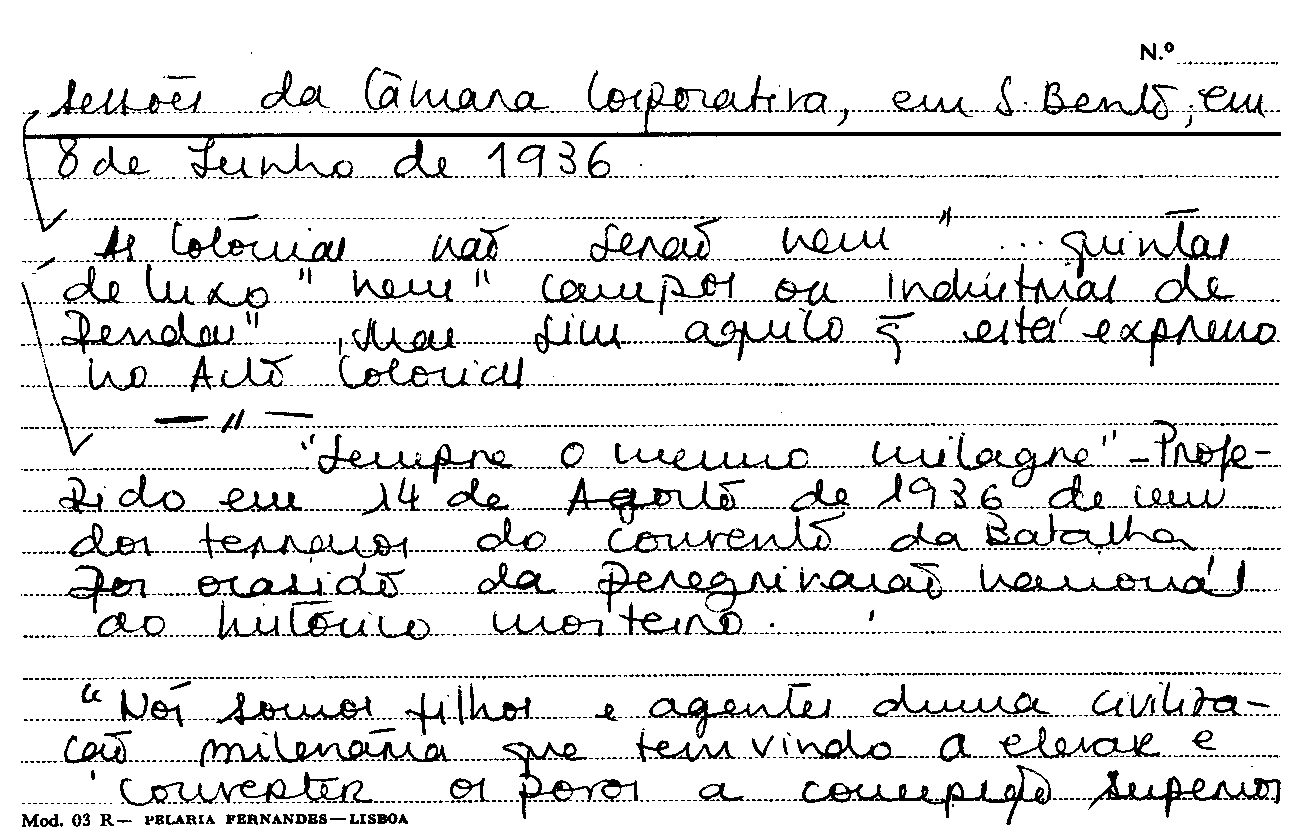 N.º
sessões da Câmara Corporativa, em S. Bento, em
8 de Junho de 1936.
As Colónias não serão nem "... quintas
de luxo" nem "campos ou indústrias de
Rendas", mas sim aquilo q̄ está expresso
no Acto Colonial
— " —
"Sempre o mesmo milagre" – Profe-
Rido em 14 de Agosto de 1936 de um
dos terrenos do convento da Batalha
por ocasião da Peregrinação nacional
ao histórico mosteiro.
"Nós somos filhos e agentes duma civiliza-
ção milenária que tem vindo a elevar e
converter os povos a concepção superior
Mod. 03 R — PELARIA FERNANDES — LISBOA